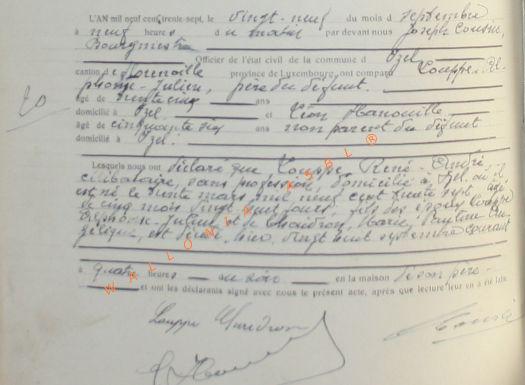 L'AN mil neuf cent trente-sept, le vingt-neuf du mois d septembre
à neuf heures du matin par devant nous Joseph Cousin,
Bourgmestre
Officier de l'état civil de la commune d'Izel
canton de Florenville province de Luxembourg, ont comparu Louppe, El-
phonse-Julien, père du défunt.
âgé de trente cinq ans
domicilié à Izel et Léon Hanouille
âgé de cinquante six ans non parent du défunt
domicilié à Izel.
20
Lesquels nous ont déclaré que Louppe, René-André,
célibataire, sans profession, domicilié à Izel où il
est né le trente mars mil neuf cent trente sept, âgé
de cinq mois vingt neuf jours, fils des époux Louppe
Alphonse-Julien et de Chaudron, Marie, Pauline An-
gélique, est décédé hier, vingt huit septembre courant
à quatre heures du soir en la maison de son père -
et ont les déclarants signé avec nous le présent acte, après que lecture leur en a été faite.
Louppe
WALLONIA ASBL ®